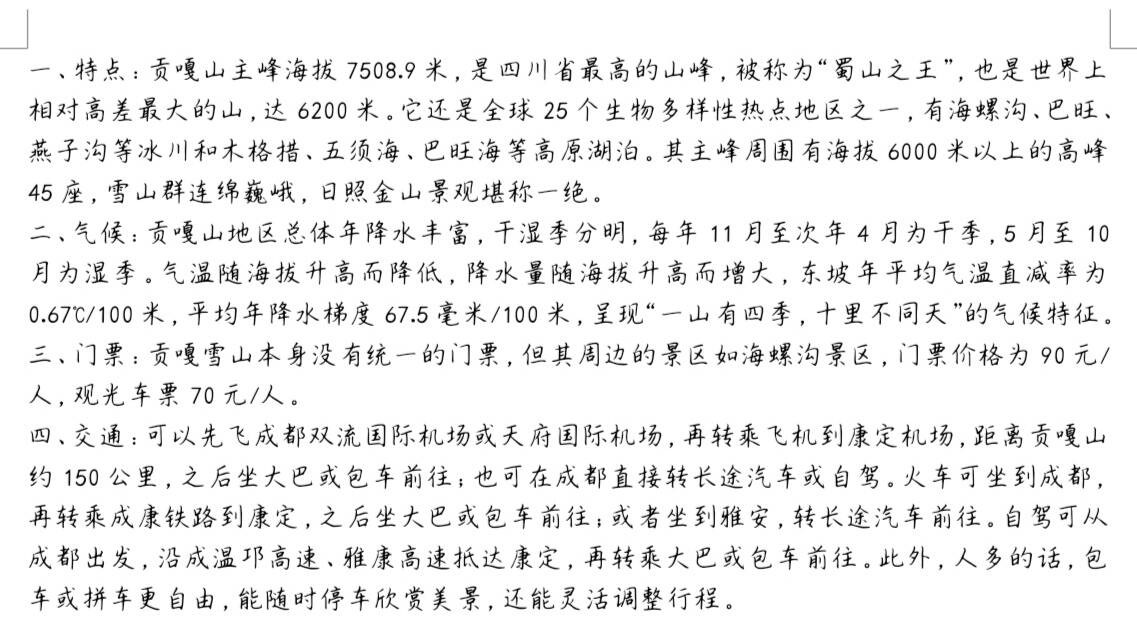 一、特点：贡嘎山主峰海拔 7508.9 米，是四川省最高的山峰，被称为“蜀山之王”，也是世界上
相对高差最大的山，达 6200 米。它还是全球 25 个生物多样性热点地区之一，有海螺沟、巴旺、
燕子沟等冰川和木格措、五须海、巴旺海等高原湖泊。其主峰周围有海拔 6000 米以上的高峰
45 座，雪山群连绵巍峨，日照金山景观堪称一绝。
二、气候：贡嘎山地区总体年降水丰富，干湿季分明，每年 11 月至次年 4 月为干季，5 月至 10
月为湿季。气温随海拔升高而降低，降水量随海拔升高而增大，东坡年平均气温直减率为
0.67℃/100 米，平均年降水梯度 67.5 毫米/100 米，呈现“一山有四季，十里不同天”的气候特征。
三、门票：贡嘎雪山本身没有统一的门票，但其周边的景区如海螺沟景区，门票价格为 90 元/
人，观光车票 70 元/人。
四、交通：可以先飞成都双流国际机场或天府国际机场，再转乘飞机到康定机场，距离贡嘎山
约 150 公里，之后坐大巴或包车前往；也可在成都直接转长途汽车或自驾。火车可坐到成都，
再转乘成康铁路到康定，之后坐大巴或包车前往；或者坐到雅安，转长途汽车前往。自驾可从
成都出发，沿成温邛高速、雅康高速抵达康定，再转乘大巴或包车前往。此外，人多的话，包
车或拼车更自由，能随时停车欣赏美景，还能灵活调整行程。